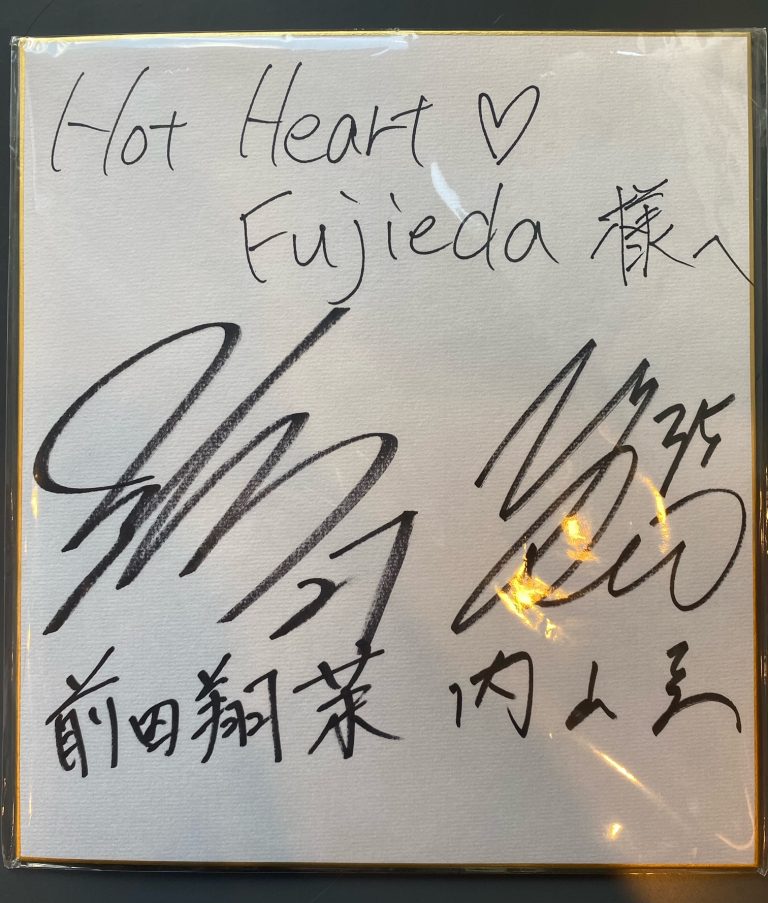 Hot Heart ♡
Fujieda 様へ
27
35
前田翔茉 内山圭